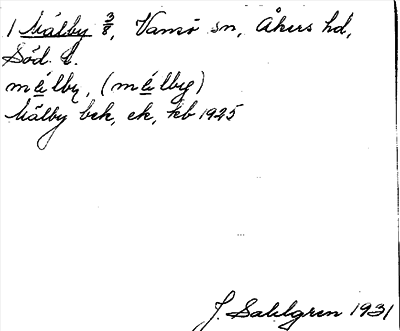 1 Målby 3/8, Vansö sn, Åkers hd,
Söd. l.
målby, (målby)
Målby bek, ek, kb 1925
J. Sahlgren 1931